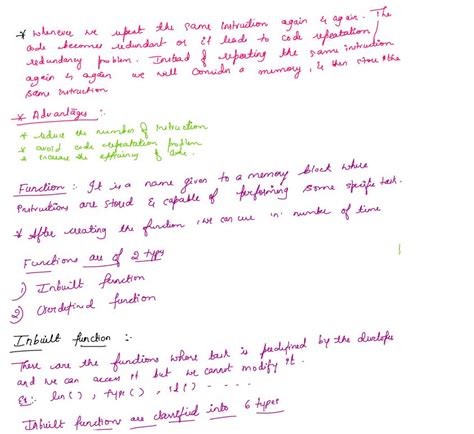 * Whenever we repeat the same instruction again & again. The
code becomes redundant or it leads to code repeatation /
redundancy problem. Instead of repeating the same instruction
again & again we will consider a memory, & then store the
same instruction
* Advantages :-
* reduce the number of instruction
* avoid code repeatation problem
* increase the efficiency of code.
Function :- It is a name given to a memory block where
instructions are stored & capable of performing some specific task.
* After creating the function, we can use in number of time
Functions are of 2 types
1) Inbuilt function
2) Userdefined function
Inbuilt function :-
These are the functions whose task is predefined by the developer
and we can access it but we cannot modify it.
Ex:- len(), type(), id() - - - -
Inbuilt functions are classified into 6 types